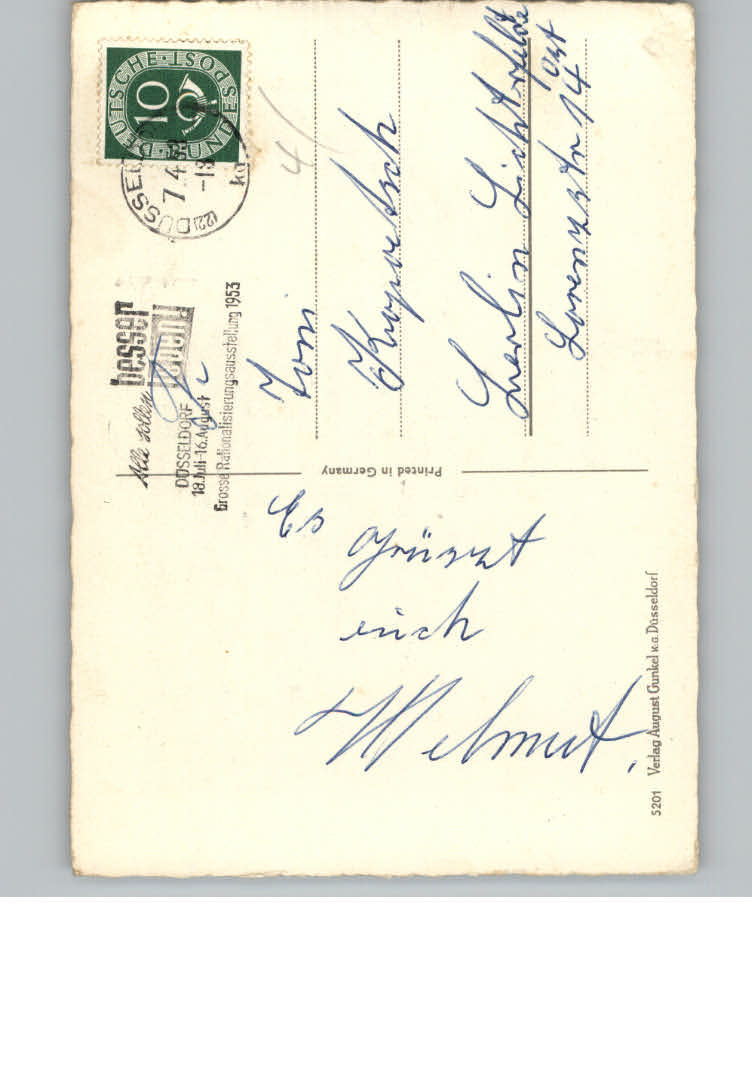 Es
Grüsst
euch
Helmut.
5201 Verlag August Gunkel K.G. Düsseldorf
Printed in Germany
DEUTSCHE BUNDESPOST
10
(22a) DÜSSELDORF
7.4.53
-18
kd
Alle sollen
besser
leben!
DÜSSELDORF
18.Juli-16.August
Grosse Rationalisierungsausstellung 1953
Fr
Toni
Kroportsch
Berlin Lichterfelde
Ost
Lorenzstr 14
4/